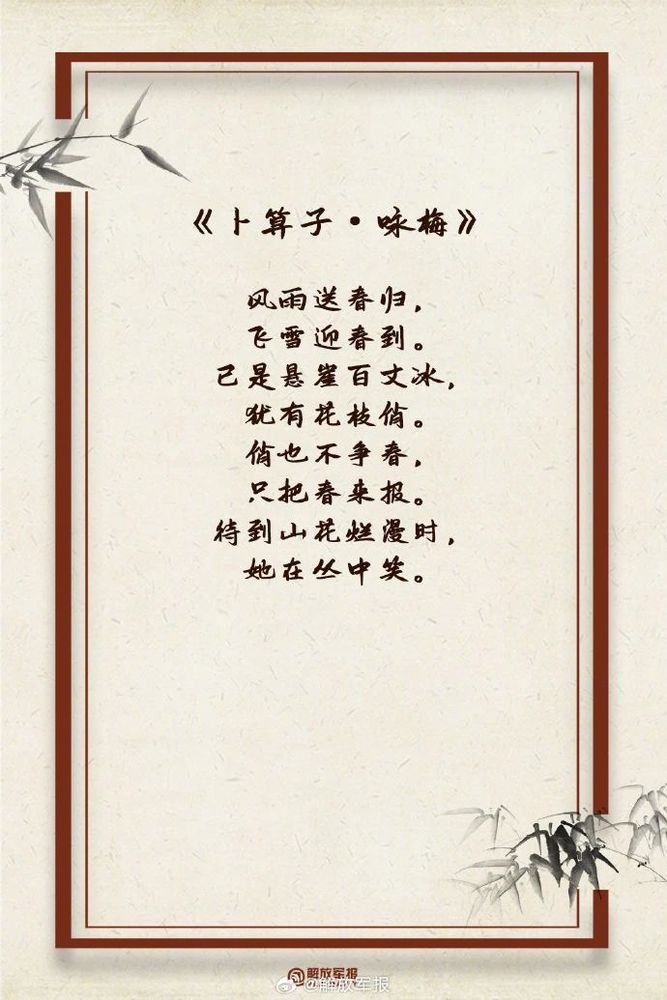 《卜算子·咏梅》
风雨送春归，
飞雪迎春到。
已是悬崖百丈冰，
犹有花枝俏。
俏也不争春，
只把春来报。
待到山花烂漫时，
她在丛中笑。
解放军报
@解放军报